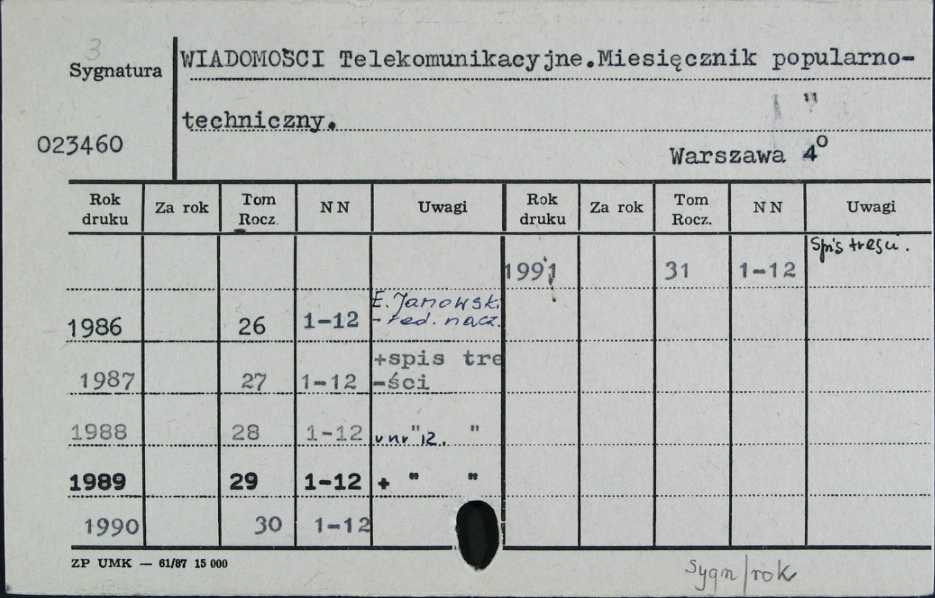 3
Sygnatura
WIADOMOŚCI Telekomunikacyjne.Miesięcznik popularno-
"
techniczny.
023460
Warszawa 4°
Rok druku Za rok Tom Rocz. NN Uwagi Rok druku Za rok Tom Rocz. NN Uwagi
1991 31 1-12 Spis treści.
1986 26 1-12 E. Janowski - red. nacz.
1987 27 1-12 +spis tre -ści
1988 28 1-12 w nr " 12. "
1989 29 1-12 + " "
1990 30 1-12
ZP UMK — 61/87 15 000
Sygn/rok